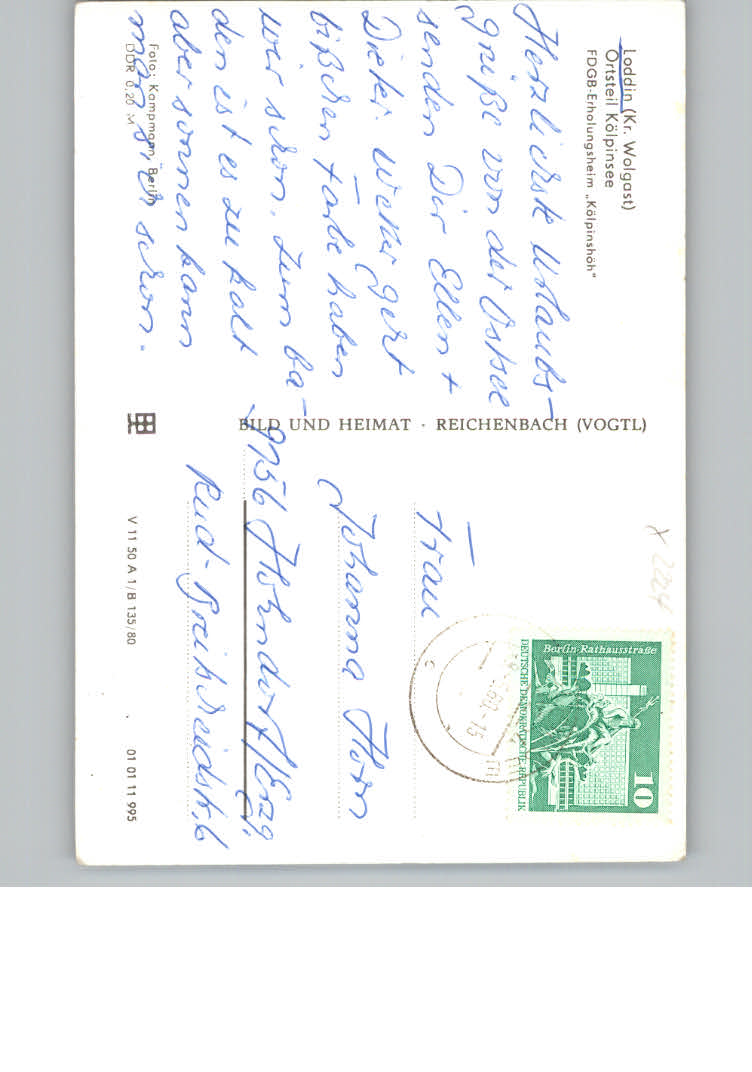 Loddin (Kr. Wolgast)
Ortsteil Kölpinsee
FDGB-Erholungsheim „Kölpinshöh"
Herzlichste Urlaubs-
grüße von der Ostsee
senden Dir Ellen +
Dieter.
bißchen Farbe haben
wir schon. Zum Ba-
den ist es zu kalt
aber sonnen kann
man sich schon.
Foto: Kampmann, Berlin
DDR 0,20 M
BILD UND HEIMAT · REICHENBACH (VOGTL)
V 11 50 A 1/B 135/80
01 01 11 995
Frau
Johanna Horn
9156 Hohndorf/Erzg.
Rud-Breitscheidstr. 6
Berlin-Rathausstraße
DEUTSCHE DEMOKRATISCHE REPUBLIK
10